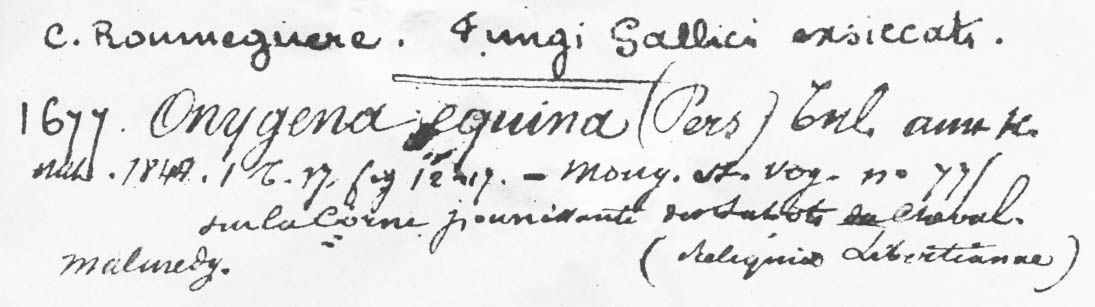 C. Roumeguere. Fungi Gallici exsiccati.
1677. Onygena equina (Pers) Tul. ann sc.
nat. 1844. 1 t. 17. fig 12-17. – Moug. St. Vog. no 775
sur la Corne pourrissante des Sabots du Cheval.
Malmedy. (Reliquiae Libertianae)